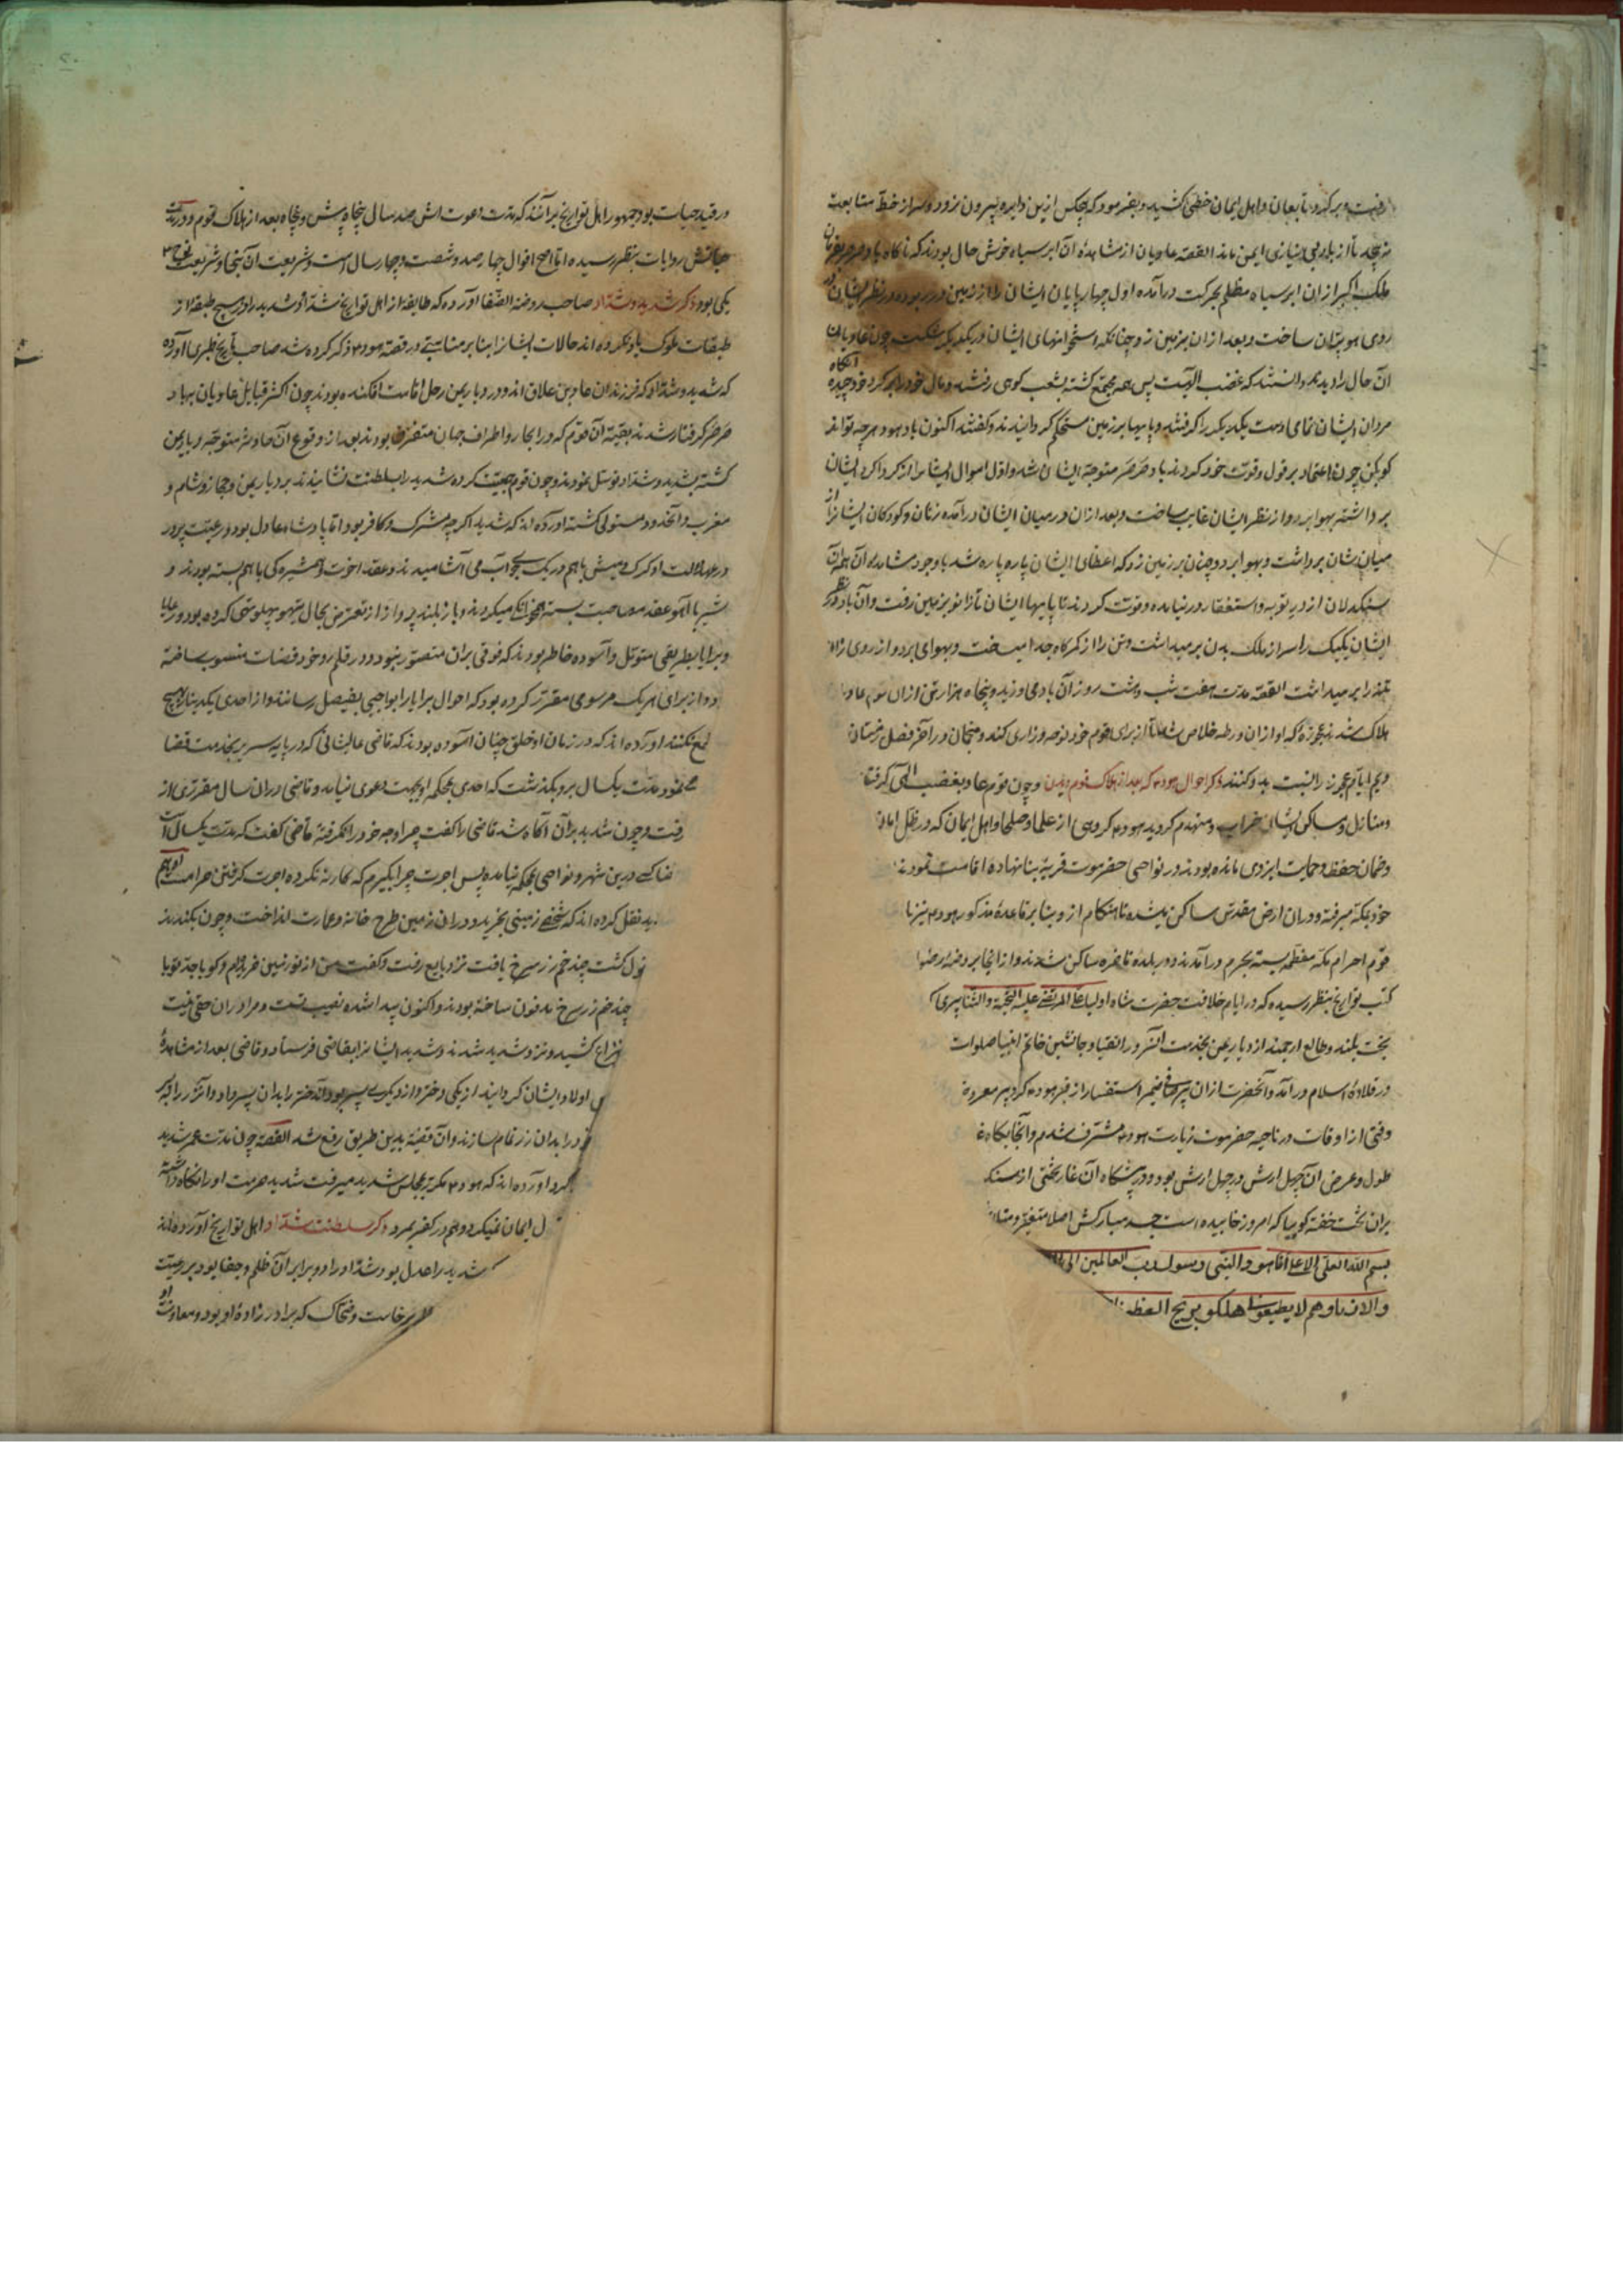 رفت و برگرد تابعان و اهل ایمان خطی کشید و بفرمود که هیچکس ازین دایره بیرون نرود و سر از خط متابعت
نه پیچد تا از بلا ایمن ماند القصه عادیان از مشاهده آن ابر سیاه خوش حال بودند که ناگاه باد صرصر بفرمان
ملک اکبر از ان ابر سیاه مظلم بحرکت درآمده اول چهارپایان ایشان را از زمین در ربوده در نظر ایشان
روی هوا پران ساخت و بعد از ان بر زمین زد چنانکه استخوانهای ایشان در یکدیگر شکست چون عادیان
آن حال را دیدند دانستند که غضب الهیست پس همه مجتمع گشته بشعب کوهی رفتند و مال خود را جمع کرد خود چیده آنگاه
مردان ایشان تمامی دست یکدیگر را گرفتند و پایها بر زمین مستحکم گردانیدند و گفتند اکنون باد هود هرچه تواند
گو بکن چون اعتماد بر قول و قوت خود کردند باد صرصر متوجه ایشان شد و اول اموال ایشان را از گرداگرد ایشان
برداشته بهوا برد و از نظر ایشان غایب ساخت و بعد از ان در میان ایشان درآمده زنان و کودکان ایشانرا از
میان شان برداشت و بهوا برد و چنان بر زمین زد که اعضای ایشان پاره پاره شد با وجود مشاهده آن همه آن
سنگدلان از در توبه و استغفار در نیامده و قوت کردند تا پایهای ایشان تا زانو بزمین رفت و آن باد در نظر
ایشان یکیک را سر از ملک بدن بر میداشت و تن را از کمرگاه جدا میساخت و بهوای برد و از روی زا
بر میداشت القصه مدت هفت شب و هشت روز آن باد می وزید و پنجاه هزار تن از ان قوم عاد
هلاک شدند و عجوزه که او از ان ورطه خلاص شد تا از برای قوم خود نوحه و زاری کند و منجمان در آخر فصل زمستان
را نسبت بدو کنند ذکر احوال هود ع م که بعد از هلاک قوم وچون قوم عاد بغضب الهی گرفتا
و منازل و مساکن ایشان خراب و منهدم گردید هود ع م گروهی از علما و صلحا و اهل ایمان که در ظل امان
و ضمان حفظ و حمایت ایزدی مانده بودند در نواحی حضرموت قریه بنا نهاده اقامت نمودند
خود بمکه میرفته و در ان ارض مقدس ساکن میشده تا هنگام از و بنا بر قاعده مذکور هود ع م نیز با
قوم احرام مکه معظمه بسته بحرم درآمدند و در بلده ساکن شدند و از انجا بروضه رضوا
کتب تواریخ بنظر رسیده که در ایام خلافت حضرت شاه اولیا علی المرتضی علیه التحیه والثنا پیری
بخت بلند و طالع ارجمند از دیار یمن بخدمت آنسرور اتقیا و جانشین خاتم انبیا صلوات
در قلاده اسلام درآمد و آنحضرت از ان پیر استفسار از قبر هود ع م کرد پیر معروض
وقتی از اوقات در ناحیه حضرموت زیارت هود ع م مشرف شدم و آنجایگاه
طول و عرض آن چهل ارش در چهل ارش بود و در پیشگاه آن غار تختی از سنگ
بران تخت خفته گوییا که امروز خوابیده است جسد مبارکش اصلا متغیر و متا
بسم الله العلی الاعلی انا هود النبی و رسول رب العالمین الی
و هم لا یطیعون هلکو بریح العظ
در قید حیات بود جمهور اهل تواریخ برآنند که مدت دعوت اش صد سال پنجاه پیش و پنجاه بعد از هلاک قوم و در
حیاتش روایات بنظر رسیده اما اصح اقوال چهار صد و شصت و چهار سال است و شریعت آن نجی و شریعت نوح ع م
یکی بود ذکر شدید و شداد صاحب روضه الصفا آورده که طایفه از اهل تواریخ شداد و شدید را در هیچ طبقه از
طبقات ملوک یاد نکرده اند حالات ایشانرا بنا بر مناسبتی در قصه هود ع م ذکر کرده شد صاحب تاریخ طبری آورده
که شدید و شداد که فرزندان عاد بن علاق اند و در دیار یمن رحل اقامت افکنده بودند چون اکثر قبایل عادیان بباد
صرصر گرفتار شدند بقیة آن قوم که در اطراف جهان متفرق بودند بعد از وقوع آن حادثه متوجه دیار یمن
گشته بشدید و شداد توسل نمودند و چون قوم جمعیت کرده شدید را بسلطنت نشانیدند بر دیار یمن و حجاز و شام و
مغرب و آنحدود مستولی گشته آورده اند که شدید اگرچه مشرک و کافر بود اما پادشاه عادل بود و رعیت پرور
در عدالت او گرگ و میش باهم در یک جو آب می آشامیدند و عقد اخوت و همشیره گی باهم بسته بودند و
شیر با آهو عقد مصاحبت بسته میکردند و باز بلند پرواز از تعرض بحال تیهو پهلو تهی کرده بود و رعایا
و برایا بطریقی متوکل و آسوده خاطر بودند که فوقی بران متصور نبود و در قلمرو خود قضات منسوب ساخته
و از برای هر یک مرسومی مقرر کرده بود که احوال برایا را بواجبی بفیصل رسانند و از احدی یکدینار
طمع نکنند آورده اند که در زمان او خلق چنان آسوده بودند که قاضی عالیشانی که در پایه سریر بخدمت قضا
می نمود مدت یکسال برو بگذشت که احدی بمحکمه او بجهت دعوی نیامد و قاضی دران سال مقرری از
رفت و چون شدید بران آگاه شد قاضی را گفت چرا وجه خود را نگرفته قاضی گفت که مدت یکسال است
تا کسی درین شهر و نواحی بمحکمه نیامده پس اجرت چرا بگیرم که کار نکرده اجرت گرفتن حرامست
نقل کرده اند که شخصی زمینی بخرید و در ان زمین طرح خانه و عمارت انداخت و چون بکندند
مشغول گشت چند خم زر سرخ یافت نزد بایع رفت و گفت من از تو زمین خریدم و گویا جد تو یا
چند خم زر سرخ مدفون ساخته بودند و اکنون پیدا شده نصیب تست و مرا در ان حقی نیست
نزاع کشید و نزد شدید شدند و شدید ایشانرا بقاضی فرستاد و قاضی بعد از مشاهده
اولاد ایشان گردانید از یکی دختر و از دیگری پسر بود آن دختر را بدان پسر داد و آن زر را
در ابدان زر تمام سازند و آن قضیه بدین طریق رفع شد القصه چون مدت عمر شدید
آورده اند که هود ع م مکرر بمجلس شدید میرفت شدید حرمت او را نگاه داشته
ایمان نمیکرد و هم در کفر بمرد ذکر سلطنت شداد اهل تواریخ آورده اند
شدید را عدل بود شداد را دو برابر آن ظلم و جفا بود بر رعیت
برخاست و ضحاک که برادر زاده او بود و معاونت او